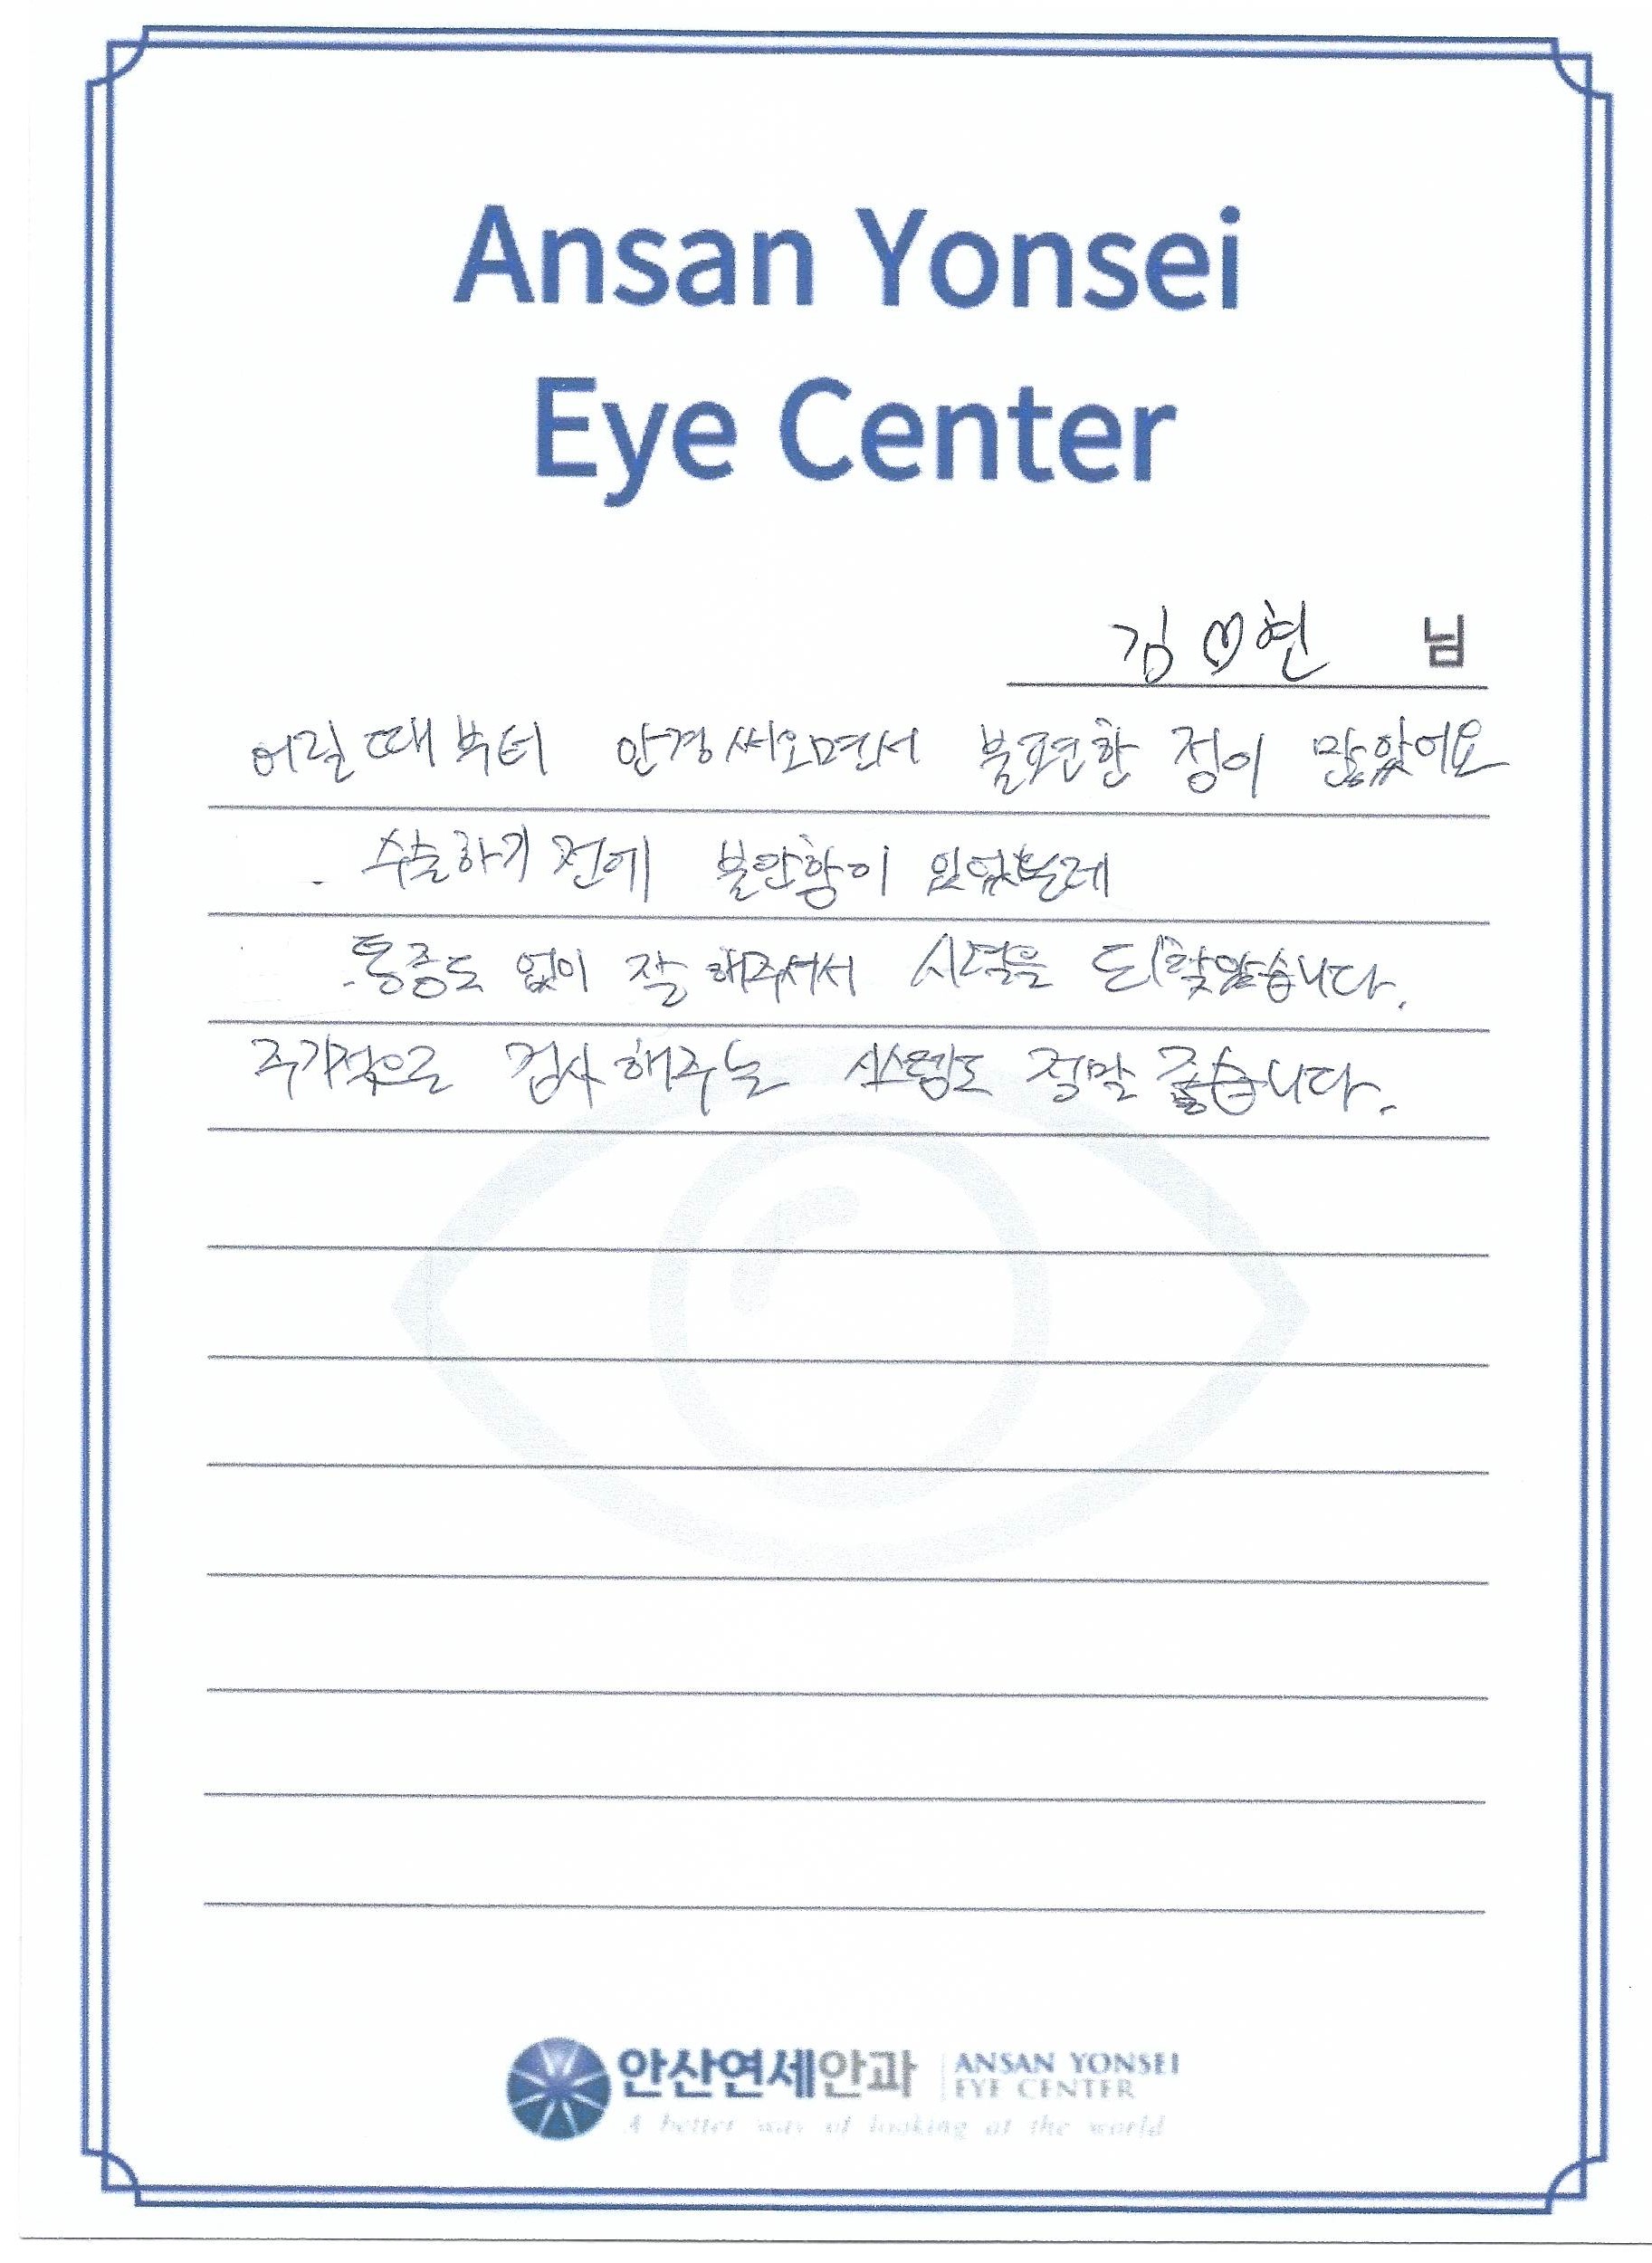 Ansan Yonsei
Eye Center
김♡현 님
어릴때부터 안경써오면서 불편한 점이 많았어요
수술하기 전에 불안함이 있었는데
통증도 없이 잘 해주셔서 시력을 되찾았습니다.
주기적으로 검사해주는 시스템도 정말 좋습니다.
안산연세안과 ANSAN YONSEI
EYE CENTER
A better way of looking at the world